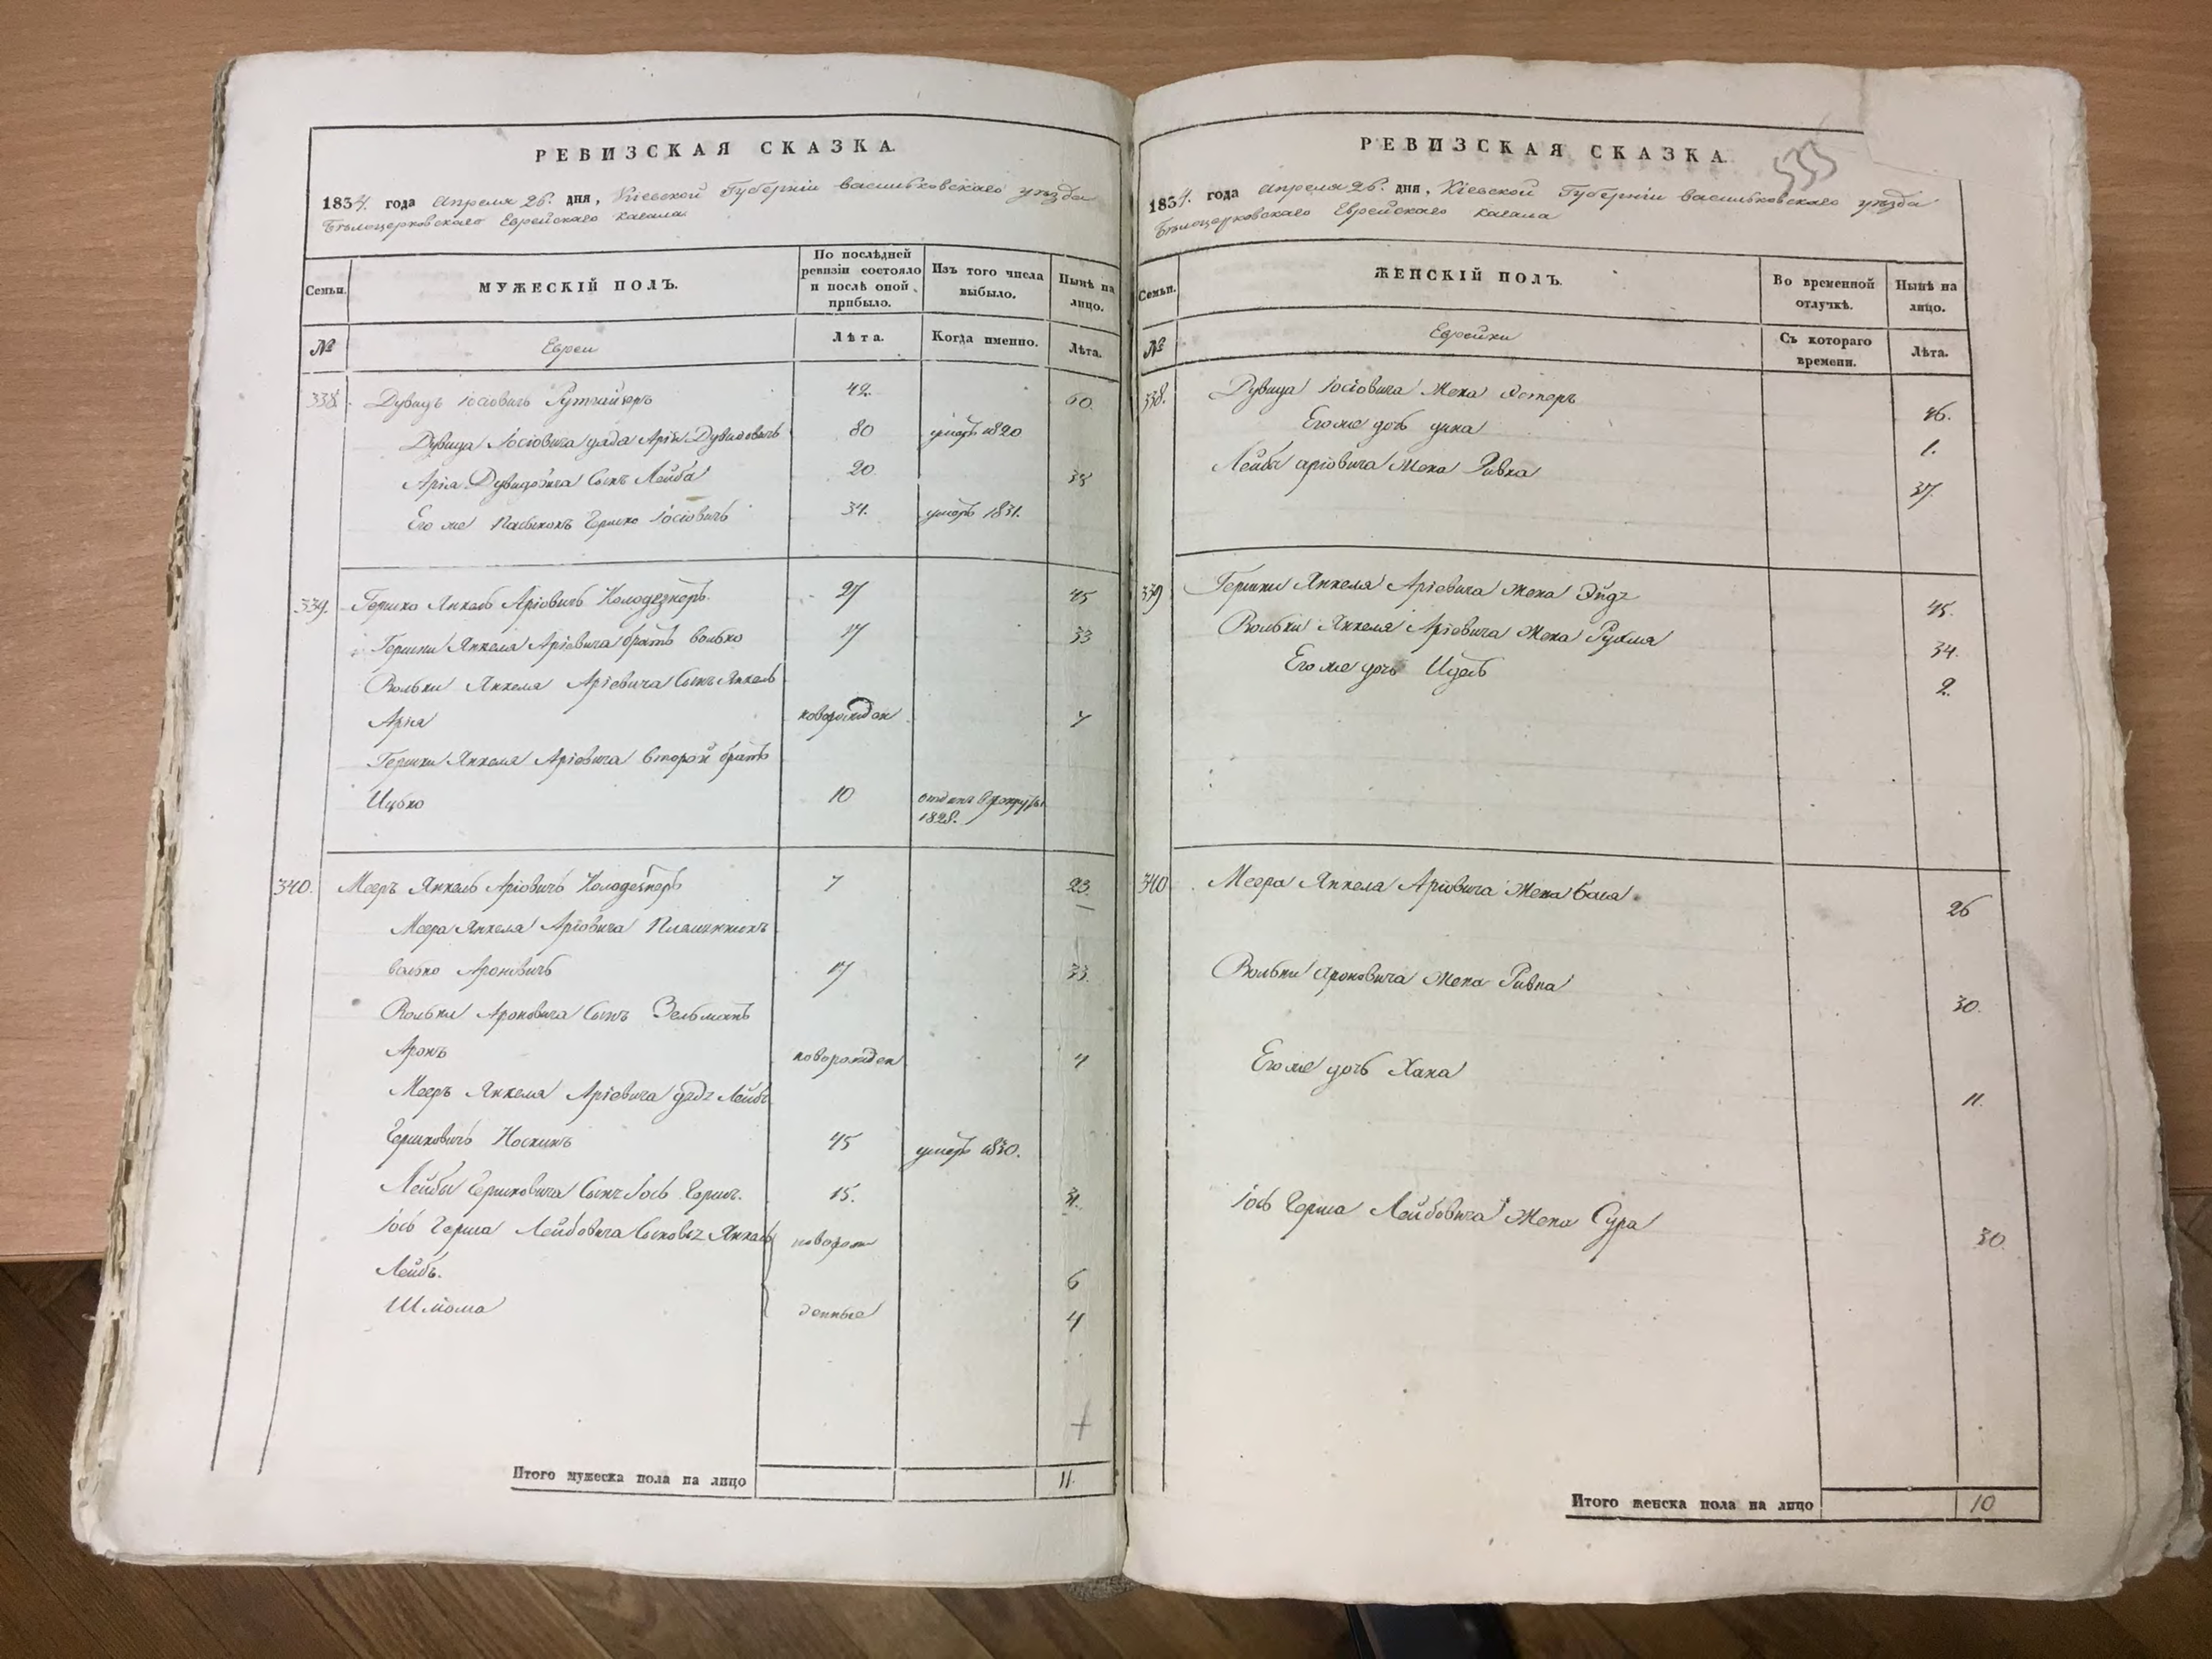 РЕВИЗСКАЯ СКАЗКА.
1834. года Апреля 26. дня, Кіевской Губерніи васильковскаго уѣзда
Бѣлоцерковскаго Еврейскаго кагала
Семьи.
МУЖЕСКІЙ ПОЛЪ.
По послѣдней ревизіи состояло и послѣ оной прибыло.
Изъ того числа выбыло.
Нынѣ на лицо.
№
Евреи
Лѣта.
Когда именно.
Лѣта.
338. Дувидъ Іосіовичъ 42. 60.
Дувида Іосіовича дядя Арія Дувидовичъ 80 умеръ 1820
Арія Дувидовича Сынъ Лейба 20 38
Его же Пасынокъ Гершко Іосіовичъ 34. умеръ 1831.
339. Гершко Янкель Аріовичъ Колодезнеръ. 27 45
Гершки Янкеля Аріевича братъ волько 17 33
Вольки Янкеля Аріевича Сынъ Янкель
Арія новорожден 7
Гершки Янкеля Аріевича второй братъ
Ицько 10 отданъ в рекруты
1828.
340. Мееръ Янкель Аріовичъ Колодезнеръ 7 23.
Меера Янкеля Аріовича Племянникъ
волько Ароновичъ 17 33.
Вольки Ароновича Сынъ Зельманъ
Аронъ новорожден 4
Мееръ Янкеля Аріевича дядя Лейба
Гершковичъ 45 умеръ 1830.
Лейбы Гершковича Сынъ Іось Герш. 15. 31.
Іось Герша Лейбовича Сыновья Янкель новорож
Лейба. 6
Шлиома денные 4
Итого мужеска пола на лицо 11.
РЕВИЗСКАЯ СКАЗКА.
533
1834. года Апреля 26. дня, Кіевской Губерніи васильковскаго уѣзда
Бѣлоцерковскаго Еврейскаго кагала
Семьи.
ЖЕНСКІЙ ПОЛЪ.
Во временной отлучкѣ.
Нынѣ на лицо.
№
Еврейки
Съ котораго времени.
Лѣта.
338. Дувида Іосіовича Жена Эстеръ 46.
Его же дочь 1.
Лейбы аріовича Жена Ривка 37.
339 Гершки Янкеля Аріевича Жена 45.
Вольки Янкеля Аріевича Жена Рухля 34.
Его же дочь Идесь 2.
340 Меера Янкеля Аріовича Жена бася 26
Вольки Ароновича Жена Ривка 30.
Его же дочь Хана 11.
Іось Герша Лейбовича Жена Сура 30.
Итого женска пола на лицо 10